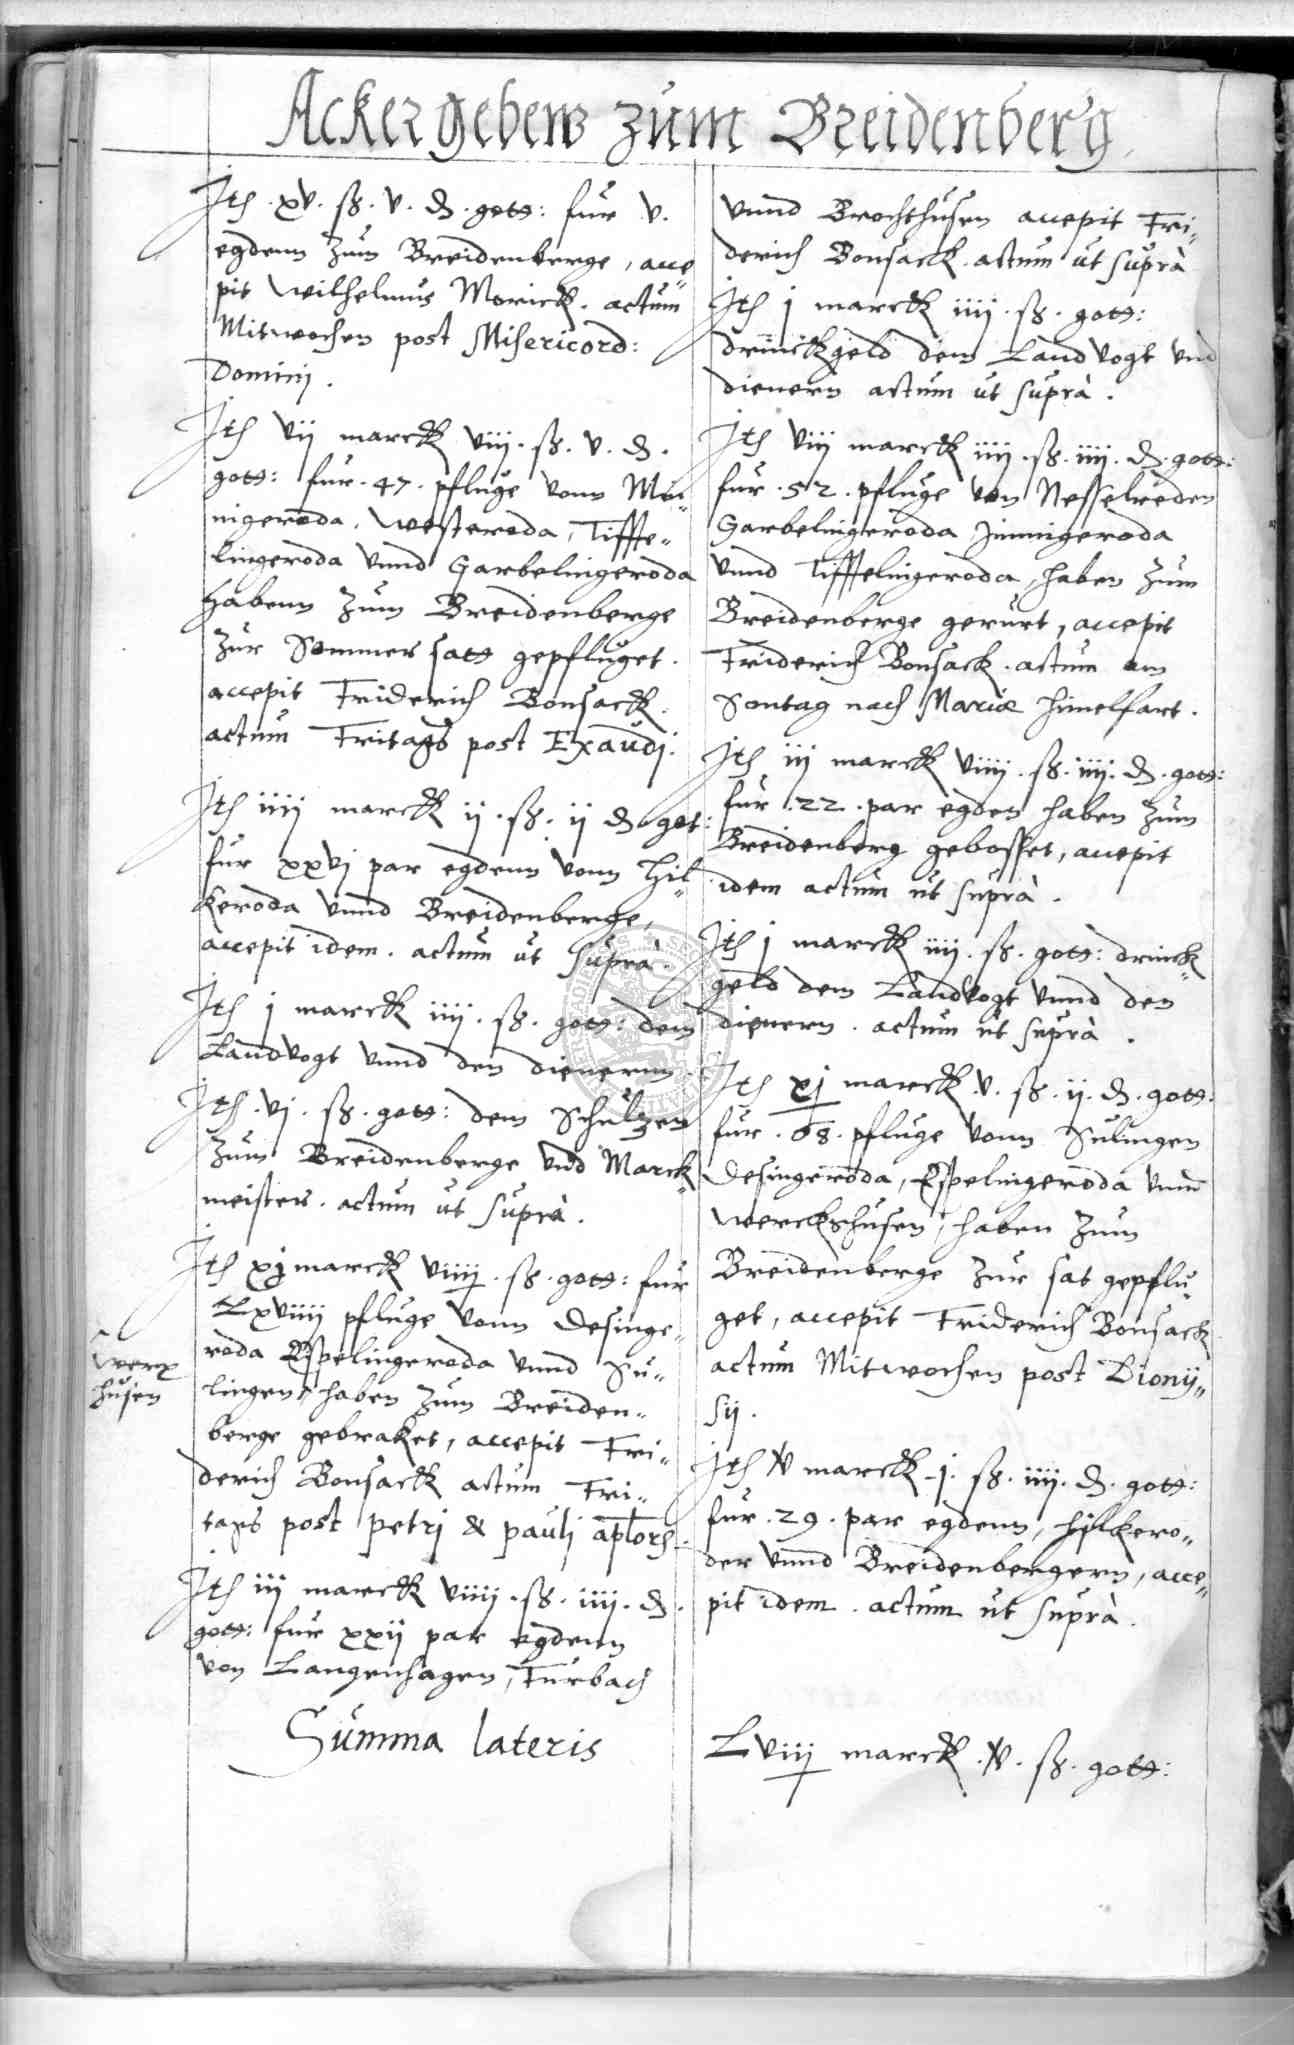 Ackergebew zum Breidenberg.
Ith xv. ß. v. ₰. gott: fur v.
egdenn zum Breidenberge, acce„
pit Wilhelmus Morick. actum
Mitwochen post Misericord:
Domini.
Ith vij marck viij. ß. v. ₰.
gott: fur. 47. pfluge vonn Mi„
nigeroda, Westeroda, Tiffte„
lingeroda vnnd Garbelingeroda
habenn zum Breidenberge
zur Sommer satt gepfluget.
accepit Friderich Bonsack.
actum Fritags post Exaudj.
Ith iiij marck ij. ß. ij ₰ got:
fur xxvj par egdenn vonn Hil„
keroda vnnd Breidenberge,
accepit idem. actum ut suprà.
Ith j marck iiij. ß. gott: dem
Landvogt vnnd den dienernn.
Ith. vj. ß. gott: dem Schultzen
zum Breidenberge vnd Marck„
meister. actum ut suprà.
Ith xj marck viiij. ß. gott: fur
Lxviiij pfluge vonn Desinge„
roda Espelingeroda vnnd Su„
lingen, haben zum Breiden„
berge gebraket, accepit Fri„
derich Bonsack actum Fri„
tags post petrj & paulj aplor̄
Ith iij marck viiij. ß. iiij. ₰.
gott: fur xxij par egdenn
von Langenhagen, Furbach
Werx
husen
Summa lateris
vnnd Brochthusen accepit Fri„
derich Bonsack. actum ut suprà
Ith j marck iiij. ß. gott:
drinckgeld dem Landvogt vnd
dienern actum ut suprà.
Ith viij marck iiij. ß. iiij. ₰. gott:
fur. 52. pfluge von Nesselreden
Garbelingeroda Jmmigeroda
vnnd Tifftelingeroda, haben zum
Breidenberge gerurt, accepit
Friderich Bonsack. actum am
Sontag nach Mariæ himelfart.
Ith iij marck viiij. ß. iiij. ₰. gott:
fur. 22. par egden haben zum
Breidenberg gebosset, accepit
idem actum ut suprà.
Ith j marck iiij. ß. gott: drinck„
geld dem Landvogt vnnd den
dienern. actum ut suprà.
Ith xj marck. v. ß. ij. ₰. gott:
fur. 68. pfluge vonn Sulingen
Desingeroda, Espelingeroda vnnd
Werckshusen, haben zum
Breidenberge zur sat gepflu„
get, accepit Friderich Bonsack
actum Mitwochen post Dionij„
sij.
Ith v marck j. ß. iiij. ₰. gott:
fur. 29. par egdenn, hilkero„
der vnnd Breidenbergern, acce„
pit idem. actum ut suprà.
Lviij marck. v. ß. gott: